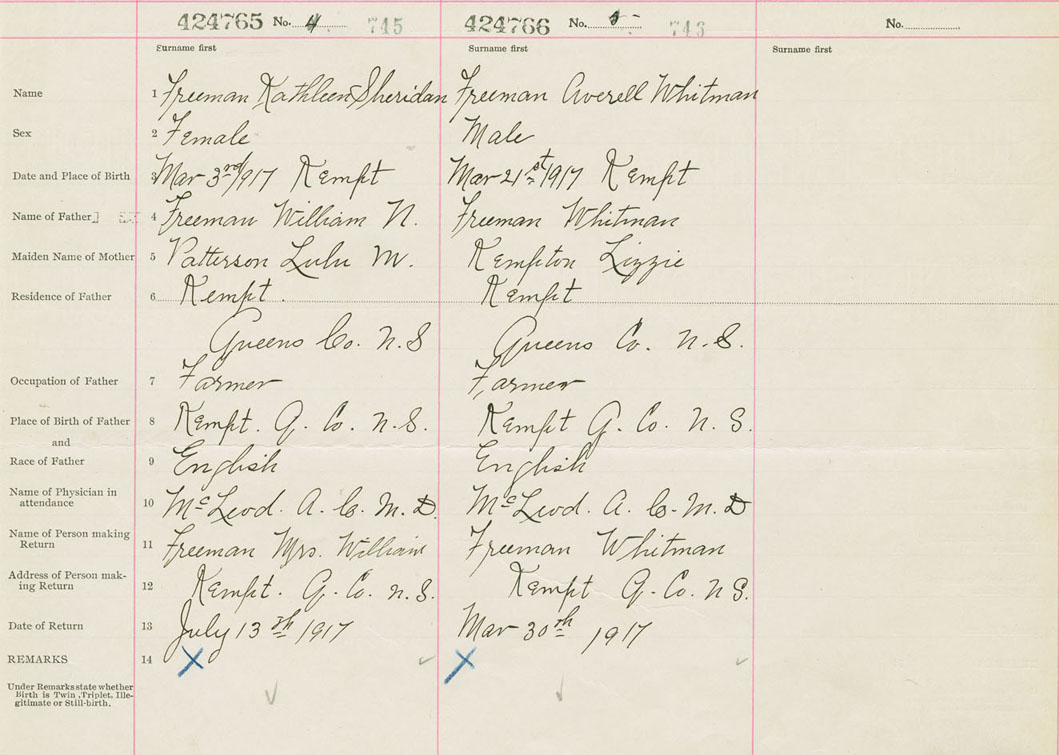 424765 No. 4 745 424766 No. 5 No.
Surname first Surname first Surname first
Name 1 Freeman Kathleen Sheridan Freeman Averell Whitman
Sex 2 Female Male
Date and Place of Birth 3 Mar 3rd/917 Kempt Mar 21st/1917 Kempt
Name of Father 4 Freeman William N. Freeman Whitman
Maiden Name of Mother 5 Patterson Lulu M. Kempton Lizzie
Residence of Father 6 Kempt. Kempt
Queens Co. N.S Queens Co. N.S.
Occupation of Father 7 Farmer Farmer
Place of Birth of Father 8 Kempt. Q. Co. N.S. Kempt Q. Co. N.S.
and
Race of Father 9 English English
Name of Physician in
attendance 10 McLeod. A. C. M.D. McLeod. A. C. M.D
Name of Person making
Return 11 Freeman Mrs. William Freeman Whitman
Address of Person mak-
ing Return 12 Kempt. Q. Co. N.S. Kempt Q. Co. N.S.
Date of Return 13 July 13th 1917 Mar 30th 1917
REMARKS 14 X X
Under Remarks state whether
Birth is Twin, Triplet, Ille-
gitimate or Still-birth.